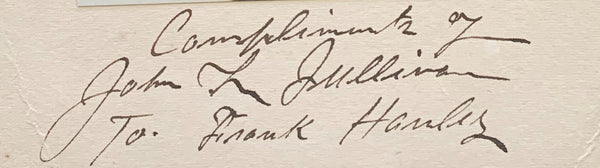 Compliments of
John L Sullivan
To. Frank Hanley